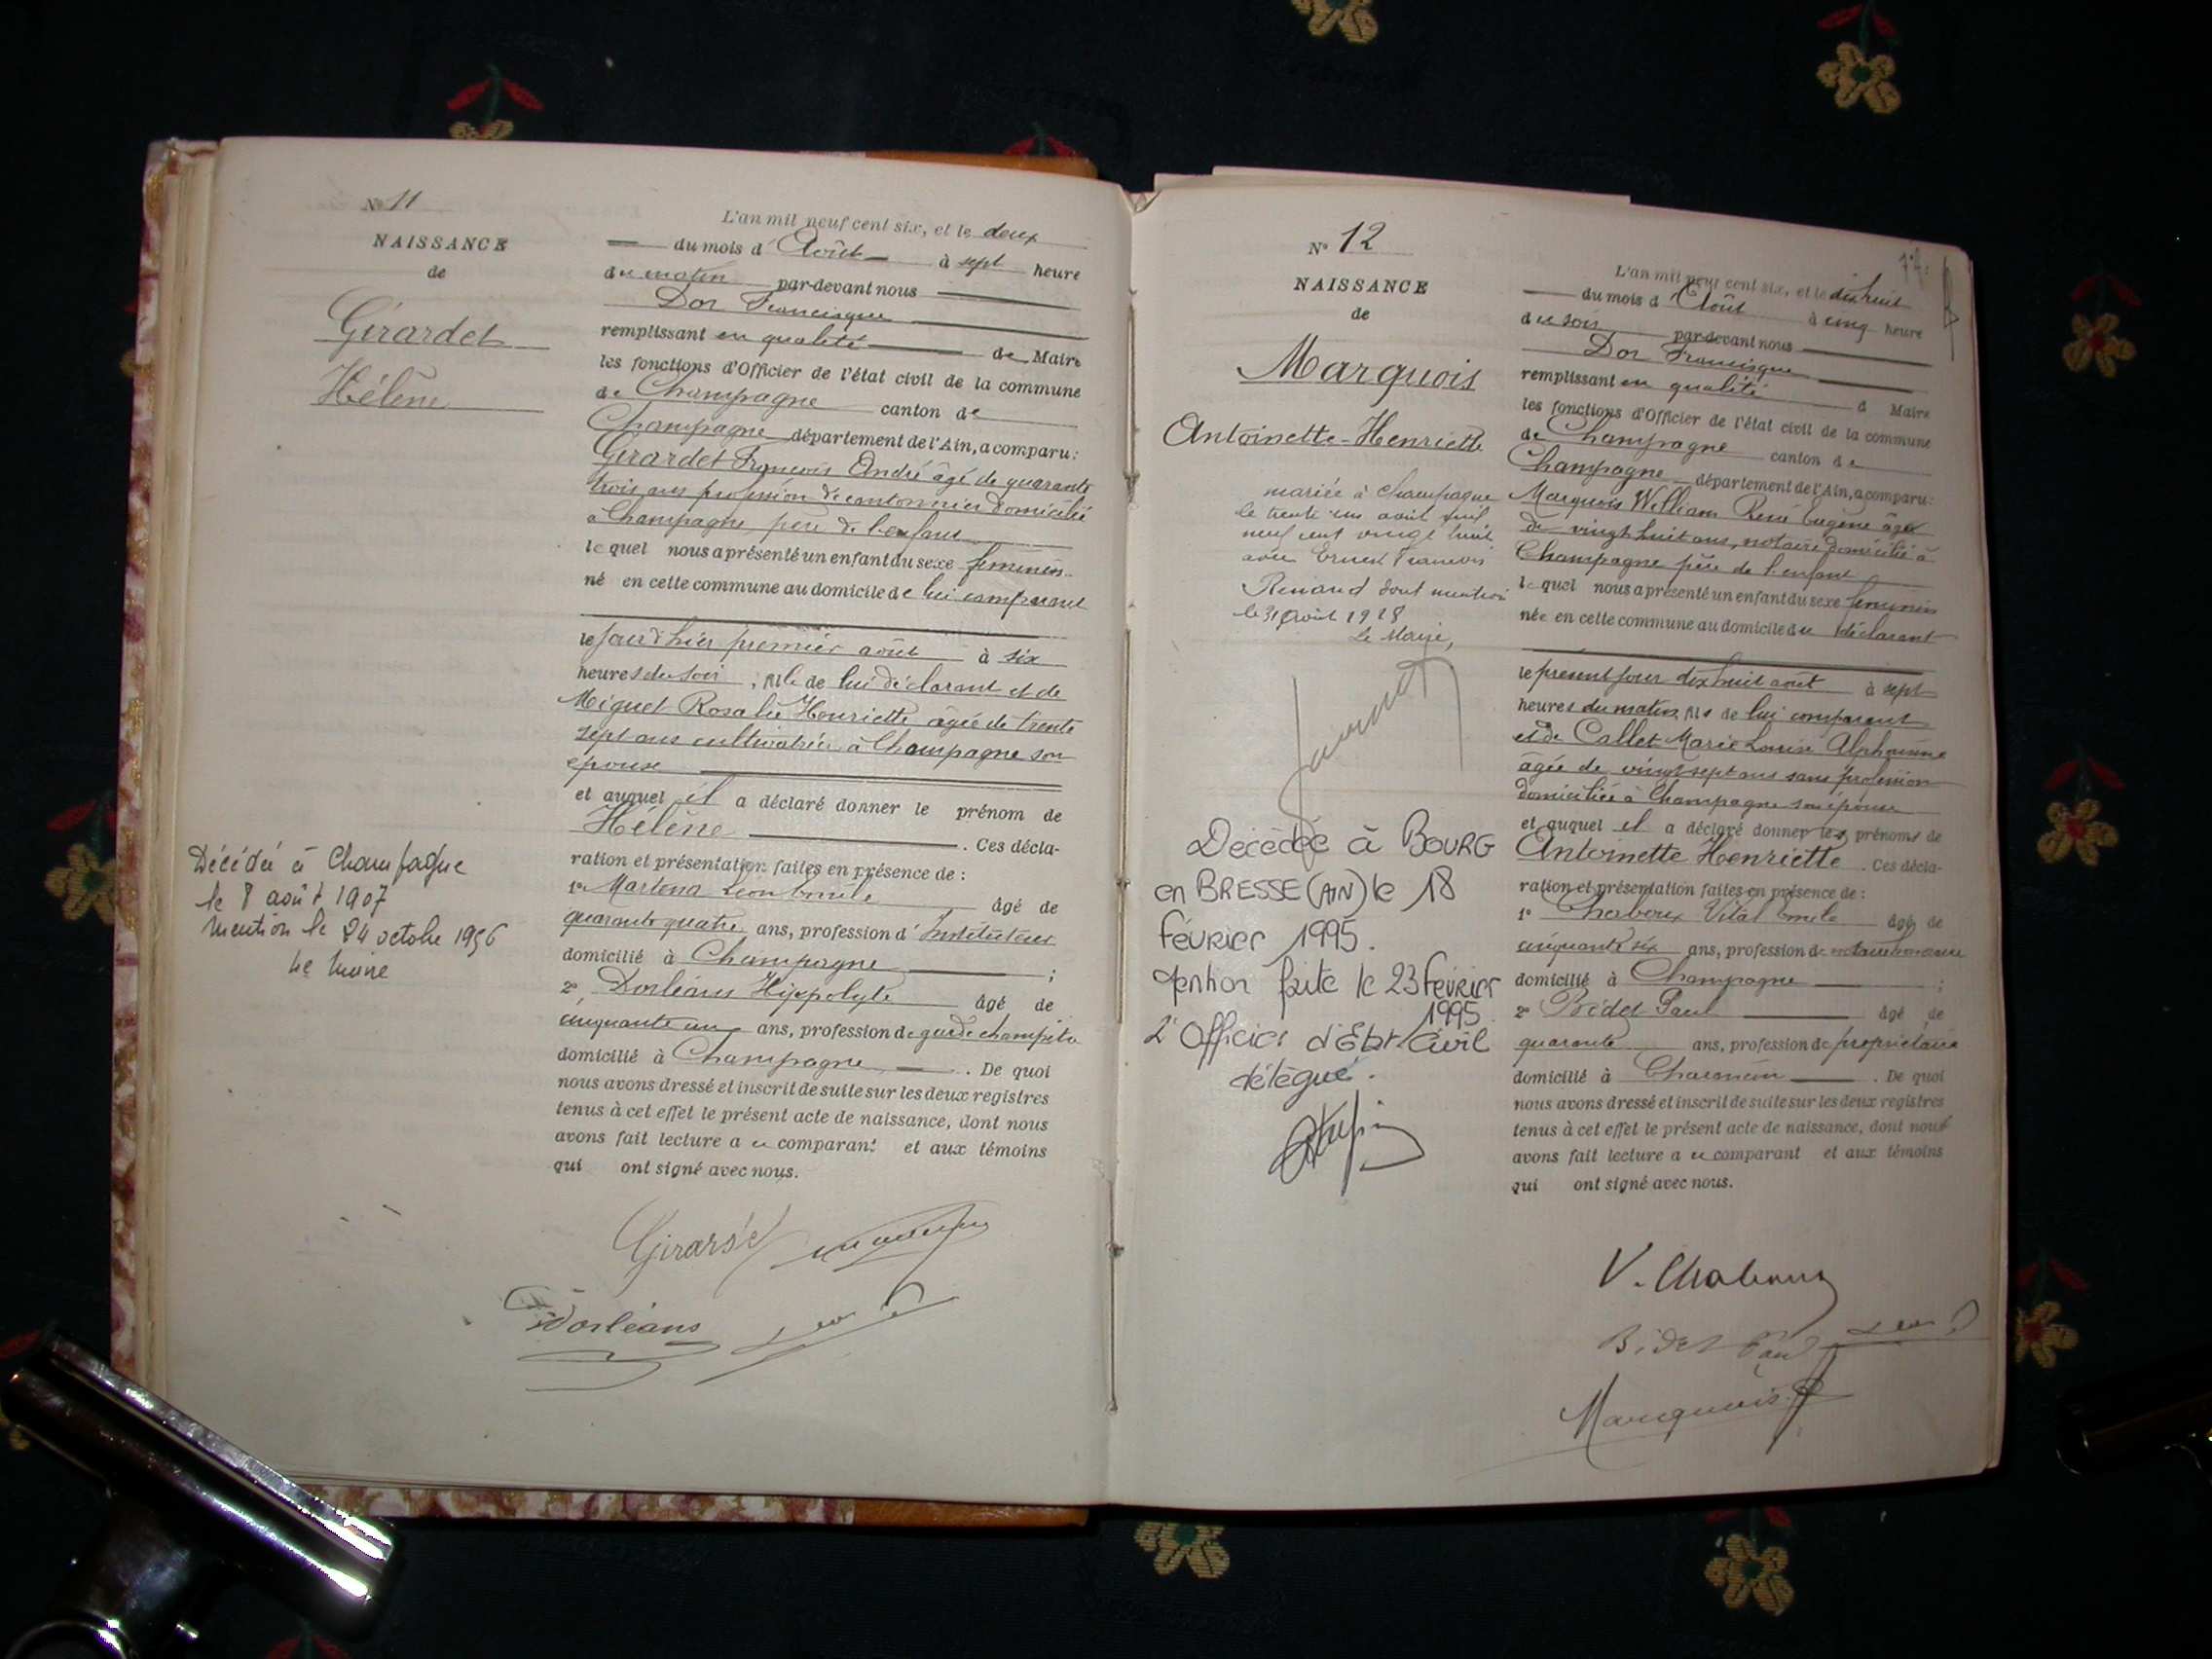 N° 11
NAISSANCE
de
Girardet
Hélène
Décédée à Champagne
le 8 août 1907
Mention le 24 octobre 1956
Le Maire
L'an mil neuf cent six, et le deux
du mois d' Août à sept heure
du matin par-devant nous
Dor Francisque
remplissant en qualité de Maire
les fonctions d'Officier de l'état civil de la commune
de Champagne canton de
Champagne département de l'Ain, a comparu:
Girardet François André âgé de quarante
trois ans profession de cantonnier domicilié
à Champagne père de l'enfant
lequel nous a présenté un enfant du sexe féminin
né en cette commune au domicile de lui comparant
le jour d'hier premier août à six
heures du soir; fille de lui déclarant et de
Miguet Rosalie Henriette âgée de trente
sept ans cultivatrice à Champagne son
épouse
et auquel il a déclaré donner le prénom de
Hélène. Ces décla-
ration et présentation faites en présence de:
1° Léon Emile âgé de
quarante quatre ans, profession d'Instituteur
domicilié à Champagne;
2° Dorléans Hippolyte âgé de
cinquante un ans, profession de garde champêtre
domicilié à Champagne. De quoi
nous avons dressé et inscrit de suite sur les deux registres
tenus à cet effet le présent acte de naissance, dont nous
avons fait lecture a u comparant et aux témoins
qui ont signé avec nous.
Girardet
Dorléans
N° 12
NAISSANCE
de
Marquois
Antoinette-Henriette
mariée à Champagne
le trente un août mil
neuf cent vingt huit
avec Ernest François
Renaud dont mention
le 31 août 1928
Le Maire,
Décédée à BOURG
en BRESSE (AIN) le 18
Février 1995.
Mention faite le 23 Février
1995
L'Officier d'Etat Civil
délégué.
L'an mil neuf cent six, et le dix huit
du mois d' Août à cinq heure
du soir par-devant nous
Dor Francisque
remplissant en qualité d Maire
les fonctions d'Officier de l'état civil de la commune
de Champagne canton de
Champagne département de l'Ain, a comparu:
Marquois William René Eugène âgé
de vingt huit ans, notaire domicilié à
Champagne père de l'enfant
lequel nous a présenté un enfant du sexe féminin
née en cette commune au domicile du déclarant
le présent jour dix huit août à sept
heures du matin, fils de lui comparant
et de Callet Marie Louise Alphonsine
âgée de vingt sept ans sans profession
domiciliée à Champagne son épouse
et auquel il a déclaré donner les prénoms de
Antoinette Henriette. Ces décla-
ration et présentation faites en présence de:
1° Vital Emile âgé de
cinquante six ans, profession de notaire honoraire
domicilié à Champagne;
2° Bidet Paul âgé de
quarante ans, profession de propriétaire
domicilié à. De quoi
nous avons dressé et inscrit de suite sur les deux registres
tenus à cet effet le présent acte de naissance, dont nous
avons fait lecture a u comparant et aux témoins
qui ont signé avec nous.
Bidet Paul
Marquois